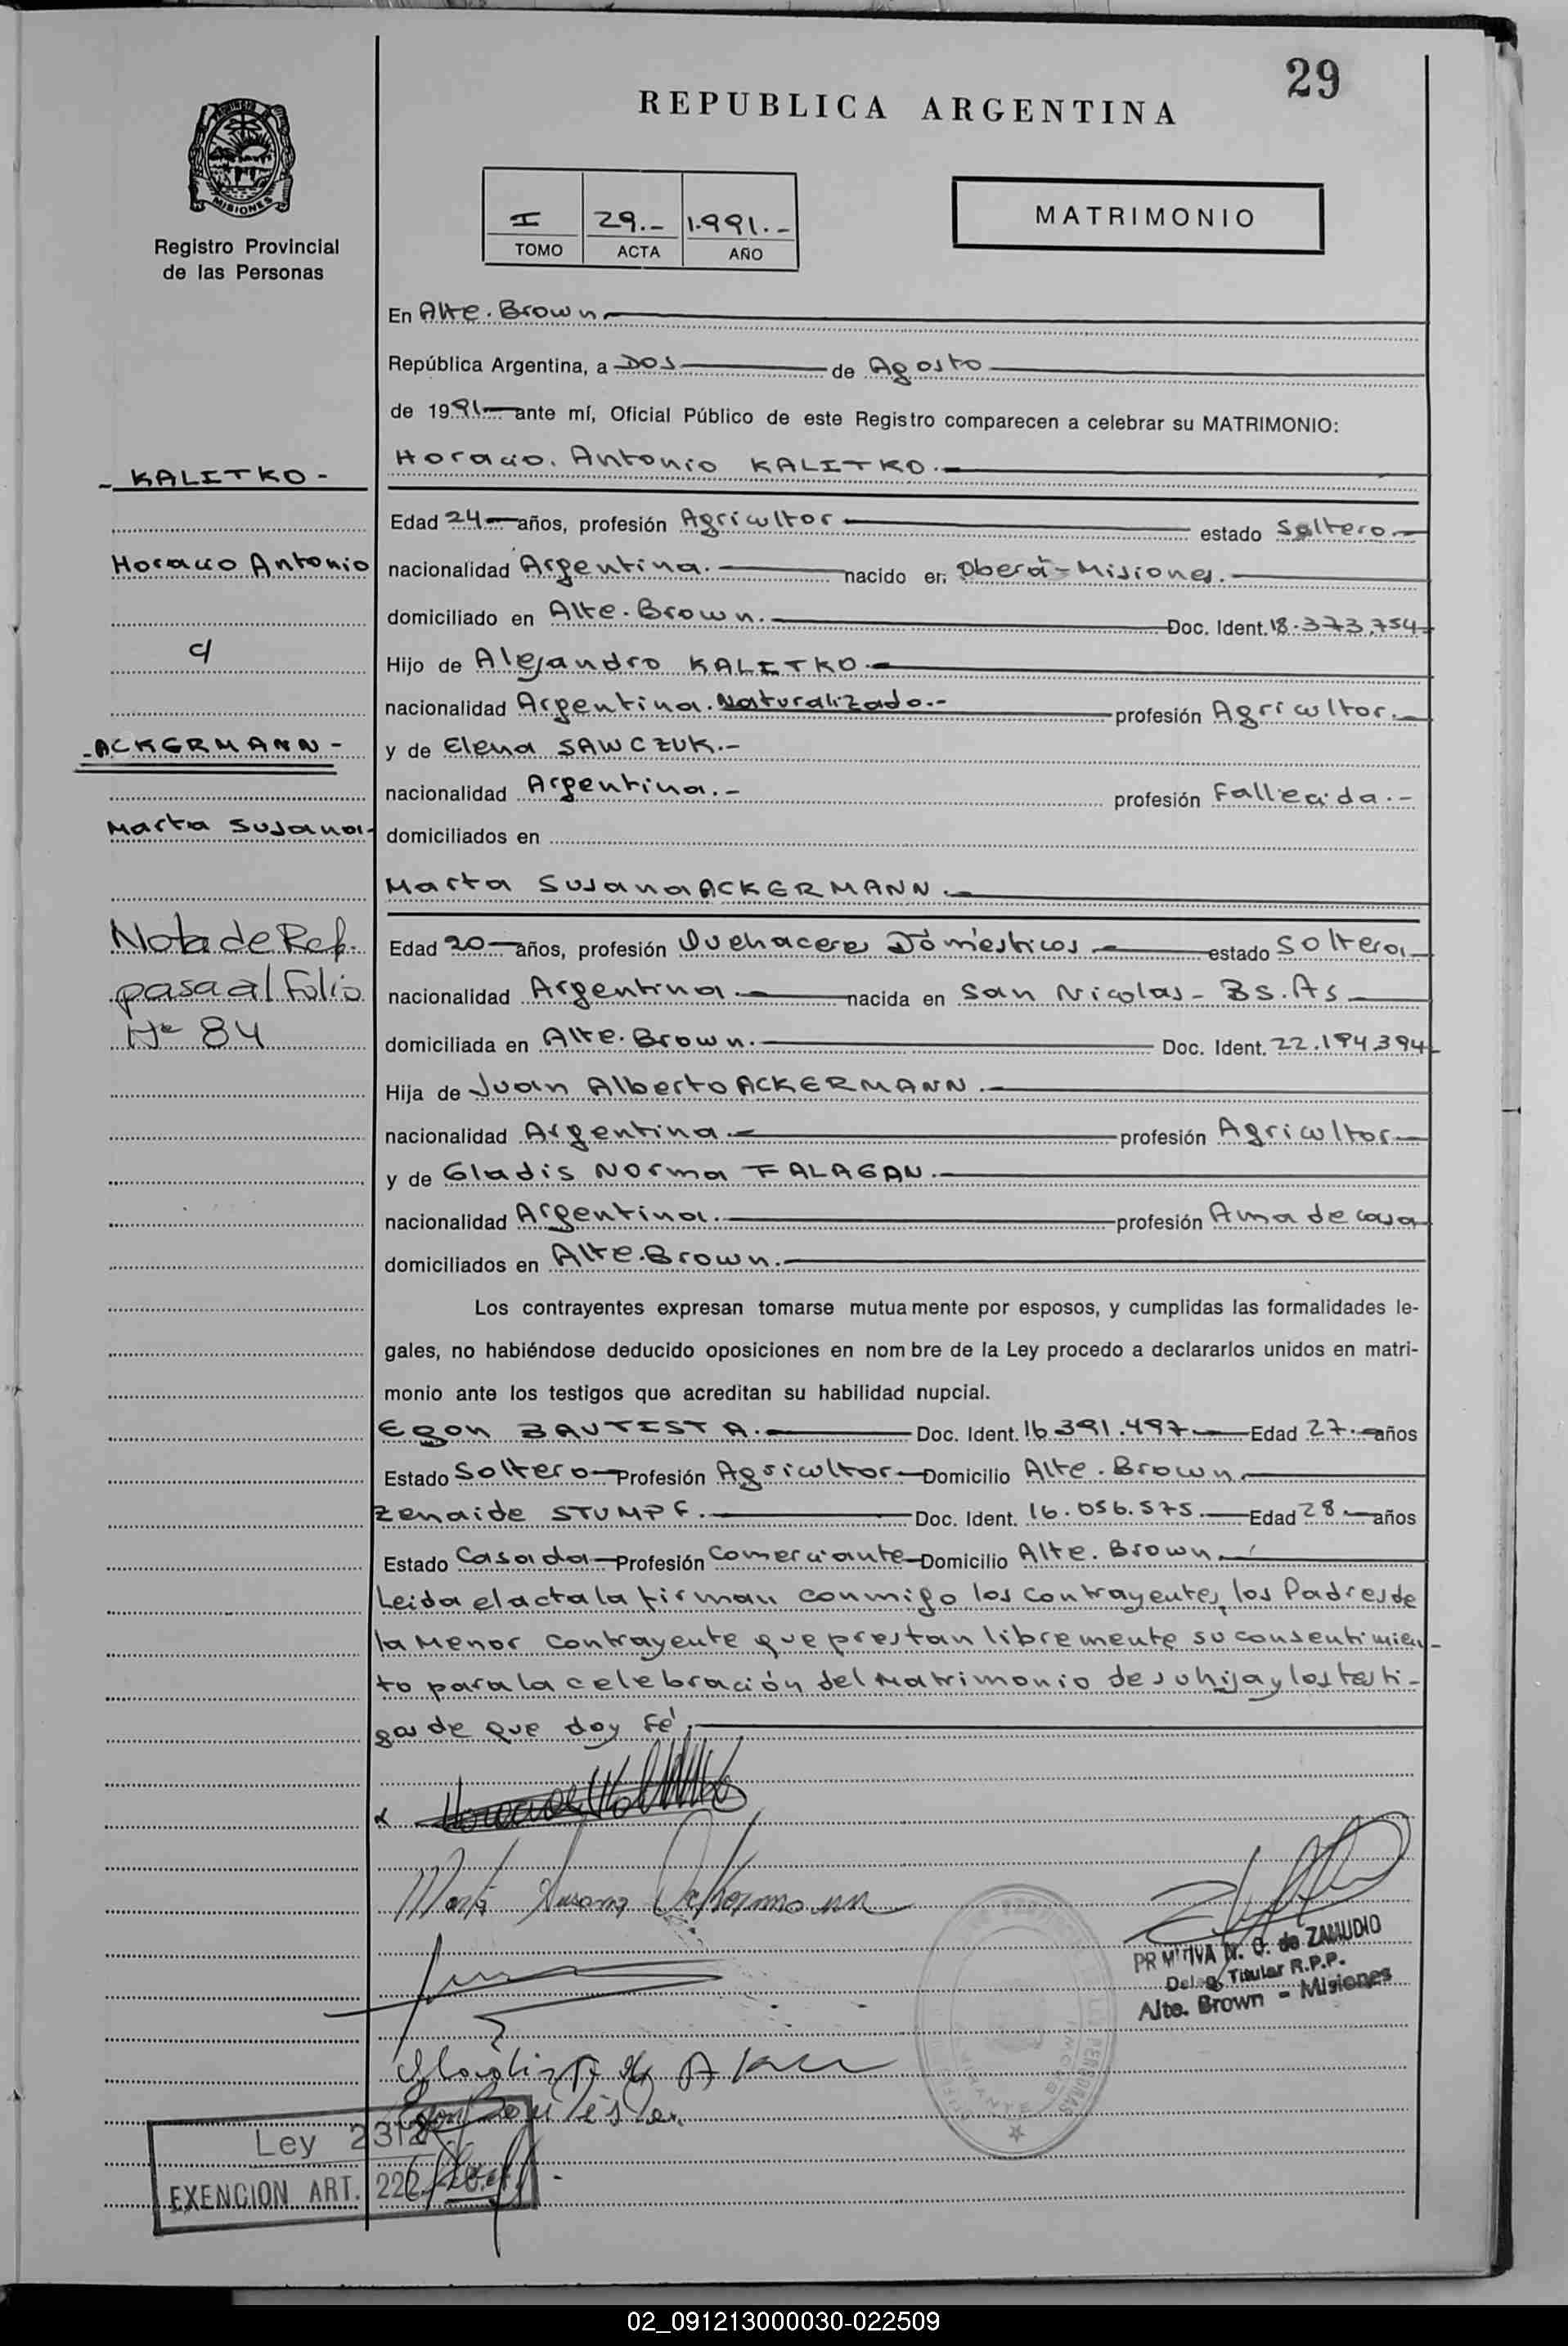 29
REPUBLICA ARGENTINA
MISIONES
Registro Provincial
de las Personas
I 29.- 1.991.-
TOMO ACTA AÑO
MATRIMONIO
En Alte. Brown
República Argentina, a Dos de Agosto
de 1991 ante mí, Oficial Público de este Registro comparecen a celebrar su MATRIMONIO:
- KALITKO -
Horacio. Antonio KALITKO.
Edad 24 años, profesión Agricultor estado Soltero
Horacio Antonio
nacionalidad Argentina. nacido en Oberá - Misiones.
domiciliado en Alte. Brown. Doc. Ident. 18.373.754
c/
Hijo de Alejandro KALITKO.
nacionalidad Argentina. Naturalizado.- profesión Agricultor.
- ACKERMANN -
y de Elena SAWCZUK.-
nacionalidad Argentina.- profesión Fallecida.-
Marta Susana
domiciliados en
Marta Susana ACKERMANN.
Nota de Ref.
pasa al Folio
Nº 84
Edad 20 años, profesión Quehaceres Domésticos estado Soltera
nacionalidad Argentina. nacida en San Nicolas - Bs. As
domiciliada en Alte. Brown. Doc. Ident. 22.194.394
Hija de Juan Alberto ACKERMANN.
nacionalidad Argentina. profesión Agricultor
y de Gladis Norma FALAGAN.
nacionalidad Argentina. profesión Ama de casa
domiciliados en Alte. Brown.
Los contrayentes expresan tomarse mutuamente por esposos, y cumplidas las formalidades le-
gales, no habiéndose deducido oposiciones en nombre de la Ley procedo a declararlos unidos en matri-
monio ante los testigos que acreditan su habilidad nupcial.
Egon BAUTISTA. Doc. Ident. 16.391.497 Edad 27. años
Estado Soltero Profesión Agricultor Domicilio Alte. Brown
Zenaide STUMPF. Doc. Ident. 16.056.575. Edad 28 años
Estado Casada Profesión Comerciante Domicilio Alte. Brown.
Leida el acta la firman conmigo los contrayentes, los Padres de
la Menor contrayente que prestan libremente su consentimien-
to para la celebración del Matrimonio de su hija y los testi-
gos de que doy fé.
Marta Susana Ackermann
PRIMITIVA N. G. de ZAMUDIO
Deleg. Titular R.P.P.
Alte. Brown - Misiones
Ley 2312
EXENCION ART. 222
02_091213000030-022509